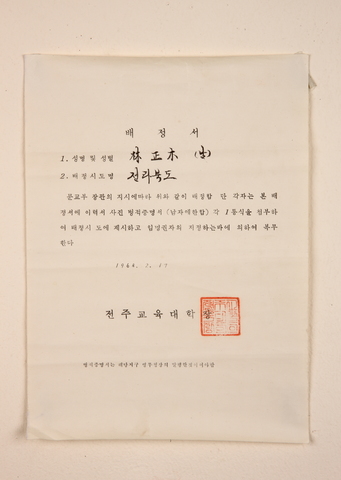 배 정 서
1. 성명 및 성별 林正木 (남)
2. 배정시도명 전라북도
문교부 장관의 지시에따라 위와 같이 배정함 단 각자는 본 배
정서에 이력서 사진 병적증명서 (남자에한함) 각 1통식을 첨부하
여 배정시 도에 제시하고 임명권자의 지정하는바에 의하여 복무
한다
1964. 2. 17
전주교육대학장
병적증명서는